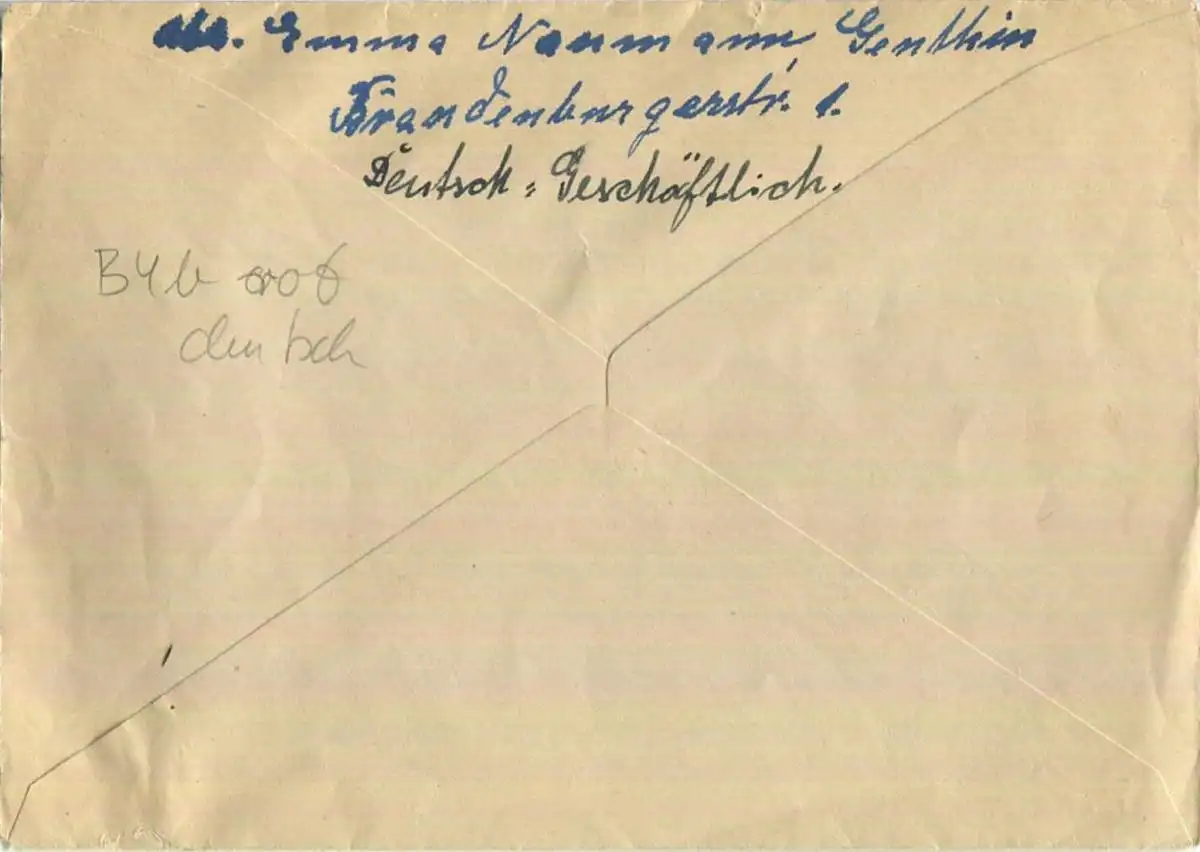 Abs. Emma Naumann Genthin
Brandenburgerstr. 1.
Deutsch = Geschäftlich.
B4b
deutsch